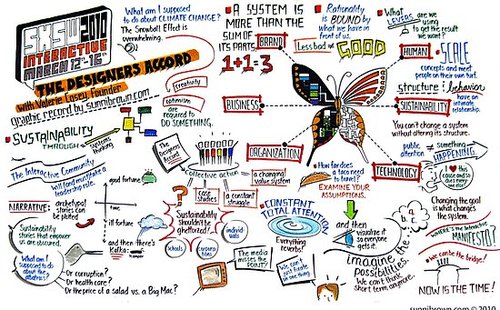 SXSW 2010
INTERACTIVE
MARCH 12-16
THE DESIGNERS ACCORD
with Valerie Casey, Founder
graphic record by sunnibrown.com
What am I supposed
to do about CLIMATE CHANGE?
The Snowball Effect is
overwhelming.
A SYSTEM IS
MORE THAN THE
SUM OF
ITS PARTS.
1+1=3
Rationality
is BOUND by
what we have in
front of us.
Less bad ≠ GOOD
What
are we
using
to get the
result we
want?
BRAND
BUSINESS
ORGANIZATION
HUMAN
SCALE
concepts and meet
people on their own turf.
structure & behavior
have an
intimate
relationship.
SUSTAINABILITY
You can't change a system
without altering its structure.
public
attention
≠
something
HAPPENING.
TECHNOLOGY
creativity
optimism
are
required to
DO SOMETHING.
SUSTAINABILITY
THROUGH
systems
thinking
The Designers
Accord
collective action
a changing
value system
case
studies
a constant
struggle
Sustainability
shouldn't be
ghettoized!
individ-
uals
schools
corpora-
tions
The Interactive Community
leadership role.
NARRATIVE:
archetypal
stories can
be plotted
good fortune
time
ill fortune
and then there's
Kafka
Sustainability
stories that empower
us are obscured.
What am I
supposed to do
about the
abstract?
Or corruption?
Or health care?
Or the price of a salad vs. a Big Mac?
How far does
a taco need
to travel?
EXAMINE YOUR
ASSUMPTIONS,
and then
visualize it
so everyone
gets it.
CONSTANT
TOTAL ATTENTION
Everything
reverbs!
The media
misses the
POINT!
We can't
just fixate
on one
thing
imagine the
possibilities.
We can't think
short term anymore.
I ♥ this
cause and so
does every-
one else
Changing the goal
is what changes
the system.
WHERE'S the Interactive
MANIFESTO?
We can be the bridge!
NOW IS THE TIME!
sunnibrown.com © 2010